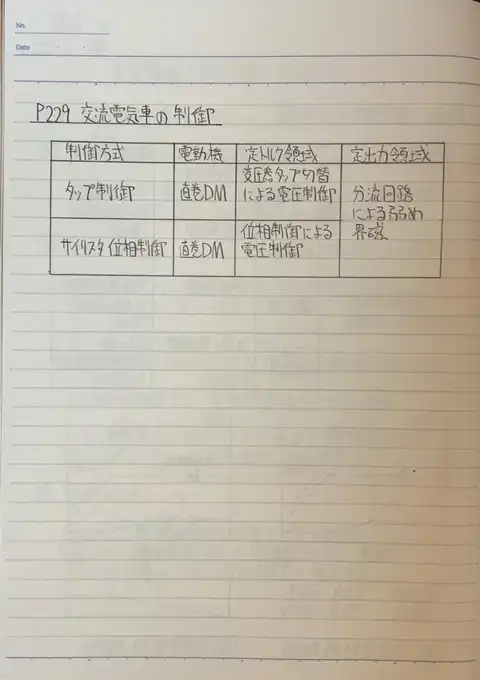 No.
Date
P229 交流電気車の制御
制御方式 電動機 定トルク領域 定出力領域
タップ制御 直巻DM 変圧器タップ切替
による電圧制御 分流回路
による弱め
界磁
サイリスタ位相制御 直巻DM 位相制御による
電圧制御